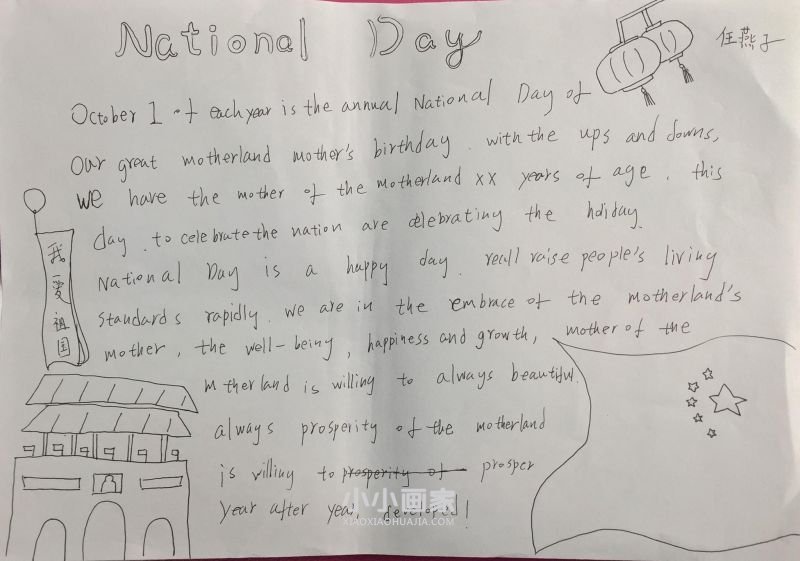 National Day
任燕子
October 1 of each year is the annual National Day of
our great motherland mother's birthday. with the ups and downs,
we have the mother of the motherland xx years of age. this
day. to celebrate the nation are celebrating the hdiday.
National Day is a happy day. recall raise people's living
standards rapidly. we are in the embrace of the motherland's
mother, the well-being, happiness and growth, mother of the
m therland is willing to always beautiful.
always prosperity of the motherland
is willing to prosperity of prosper
year after year, developed!
我爱祖国
小小画家
XIAOXIAOHUAJIA.COM